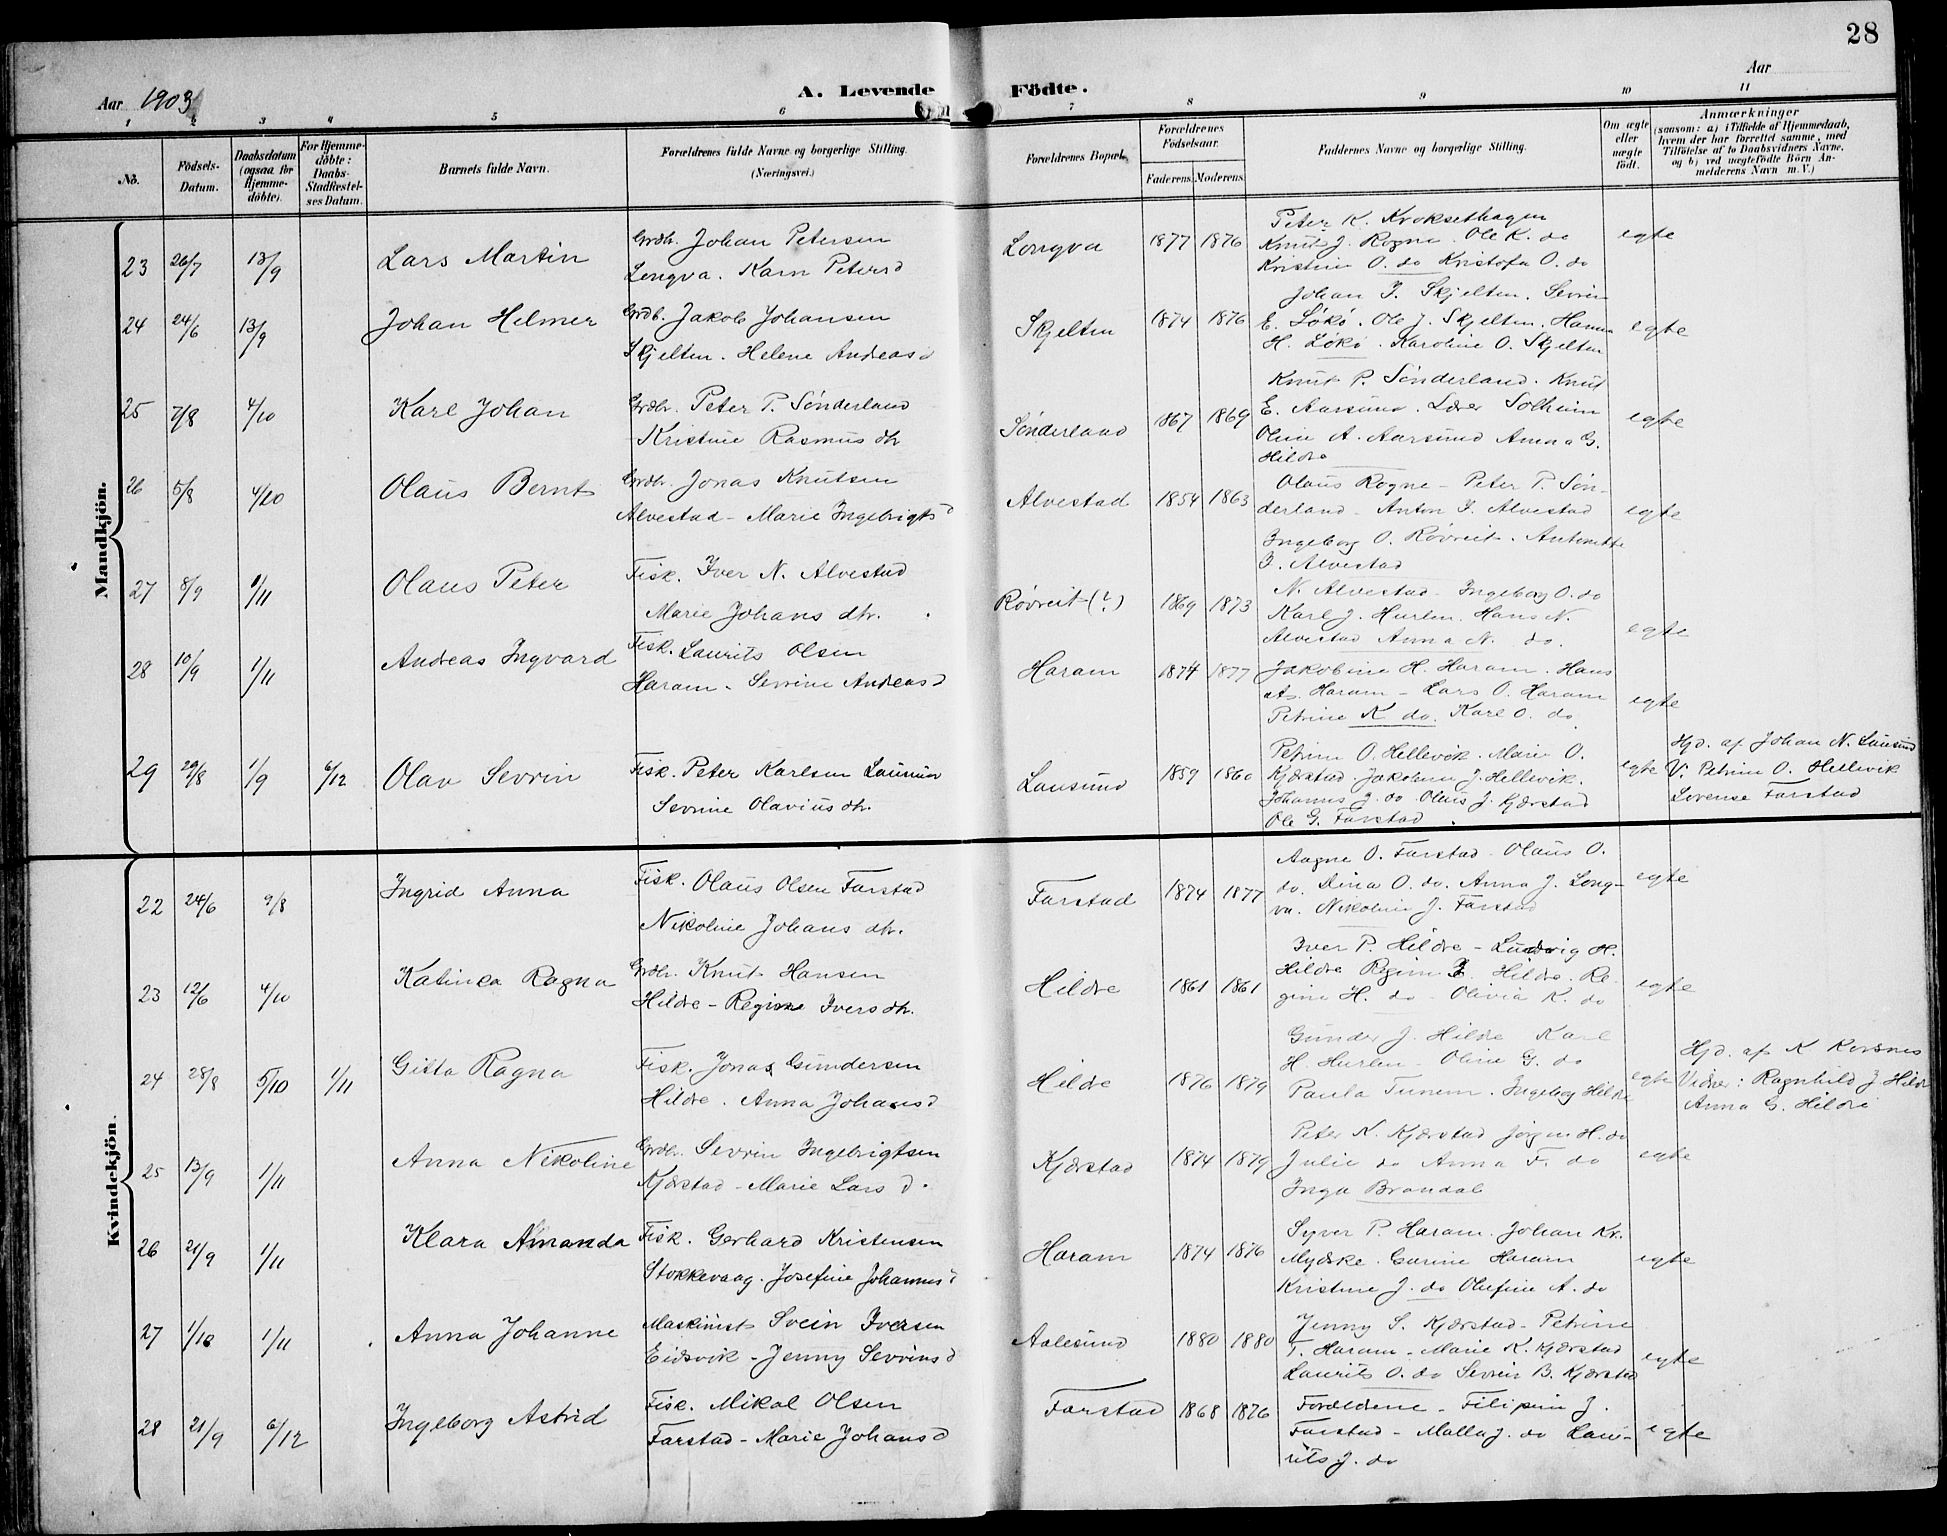 28
Aar 1903
A. Levende Födte.
Aar
1 2 3 4 5 6 7 8 9 10 11
No.
Födsels-Datum.
Daabsdatum (ogsaa for Hjemmedöbte).
For Hjemmedöbte: Daabs-Stadfæstelses Datum.
Barnets fulde Navn.
Forældrenes fulde Navne og borgerlige Stilling. (Næringsvei.)
Forældrenes Bopæl.
Forældrenes Fødselsaar.
Faderens. Moderens.
Faddernes Navne og borgerlige Stilling.
Om ægte eller uægte født.
Anmærkninger
(saasom: a) i Tilfælde af Hjemmedaab, hvem der har forrettet samme, med Tilföielse af to Daabsvidners Navne, og b) ved uægtefödte Börn Anmelderens Navn m. V.)
Mandkjön.
23 26/7 13/9 Lars Martin
Grdbr. Johan Petersen
Longva. Karn Petersd
Longva 1877 1876
Peter K. Kroksethagen
Knut J. Rogne. Ole K. do
Kristine O. do Kristofa O. do
egte
24 24/6 13/9 Johan Helmer
Grdb. Jakob Johansen
Skjelten. Helene Andreasd
Skjelten 1874 1876
Johan J. Skjelten. Sevrin
E. Løkø. Ole J. Skjelten. Hanna
H. Løkø. Karoline O. Skjelten
egte
25 7/8 4/10 Karl Johan
Grdbr. Peter P. Sønderland
Kristine Rasmus dtr
Sønderland 1867 1869
Knut P. Sønderland. Knut
E. Aarsund. Lærer Solheim
Oline A. Aarsund Anna G.
Hildre
egte
26 5/8 4/10 Olaus Bernt
Grdbr. Jonas Knutsen
Alvestad - Marie Ingebrigtsd
Alvestad 1854 1863
Olaus Rogne - Peter P. Søn-
derland - Anton J. Alvestad
Ingeborg O. Røvreit. Antonette
J. Alvestad
egte
27 8/9 1/11 Olaus Peter
Fisk. Iver N. Alvestad
Marie Johans dtr.
Røvreit (?) 1869 1873
N. Alvestad - Ingeborg O. do
Karl J. Hurlen. Hans N.
Alvestad Anna N. do.
egte
28 10/9 1/11 Andreas Ingvard
Fisk. Laurits Olsen
Haram - Sevrine Andreasd
Haram 1874 1877
Jakobine H. Haram. Hans
A. Haram - Lars O. Haram
Petrine K do. Karl O. do
egte
29 29/8 1/9 6/12 Olav Sevrin
Fisk. Peter Karlsen Lausund
Sevrine Olavius dtr.
Lausund 1859 1860
Petrine O. Hellevik. Marie O.
Kjærstad. Jakobine J. Hellevik.
Johannes J. do. Olaus J. Kjærstad
Ole G. Farstad
egte
Hjd. af Johan N. Lausund
V. Petrine O. Hellevik
Lovense Farstad
Kvindekjön.
22 24/6 9/8 Ingrid Anna
Fisk. Olaus Olsen Farstad
Nikoline Johans dtr.
Farstad 1874 1877
Aagne O. Farstad - Olaus O.
do. Dina O. do. Anna J. Long-
va. Nikoline J. Farstad
egte
23 12/6 4/10 Katinca Ragna
Grdbr. Knut Hansen
Hildre - Regine Ivers dtr.
Hildre 1861 1861
Iver P. Hildre - Ludvig H.
Hildre Regine I. Hildre. Re-
gine H. do - Olivia K. do
egte
24 28/8 5/10 1/11 Gitta Ragna
Fisk. Jonas Gundersen
Hildre. Anna Johansd
Hildre 1876 1879
Gunder J. Hildre Karl
H. Hurlen - Oline G. do
Paula Tunem. Ingeborg Hildre
egte
Hjd. af K Rovsnes
Vidner: Ragnhild J Hildre
Anna G. Hildre
25 13/9 1/11 Anna Nikoline
Grdbr. Sevrin Ingebrigtsen
Kjærstad - Marie Lars d.
Kjærstad 1874 1879
Peter N. Kjærstad Jørgen H. do
Julie do Anna F. do
Inga Brandal
egte
26 21/9 1/11 Klara Amanda
Fisk. Gerhard Kristensen
Stokkevaag. Josefine Johannesd
Haram 1874 1876
Syver P. Haram. Johan Kr.
Mydske. Gurine Haram
Kristine J. do Olufine A. do
egte
27 1/10 1/11 Anna Johanne
Maskinist Svein Iversen
Eidsvik - Jenny Sevrinsd
Aalesund 1880 1880
Jenny S. Kjærstad - Petrine
T. Haram - Marie K. Kjærstad
Laurits O. do Sevrin B. Kjærstad
egte
28 21/9 6/12 Ingeborg Astrid
Fisk. Mikal Olsen
Farstad - Marie Johansd
Farstad 1868 1876
Forældrene - Filipine J.
Farstad - Malla J. do Lau-
rits J. do
egte